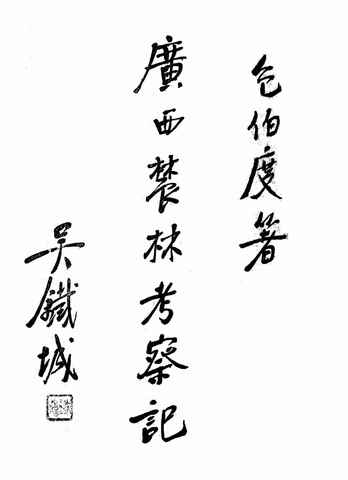 包伯度著
廣西農林考察記
吳鐵城